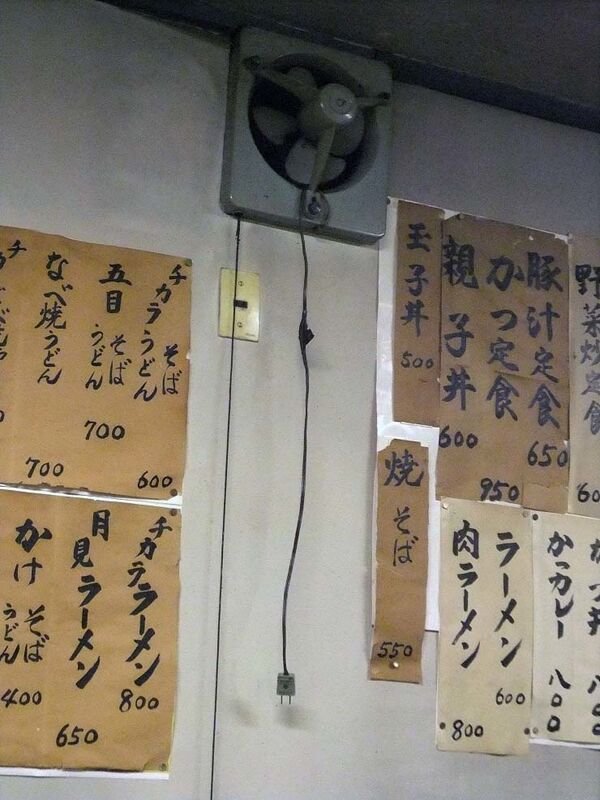 チカラ そば うどん 600
五目 そば うどん 700
なべ焼うどん 700
チカララーメン 800
月見ラーメン 650
かけ そば うどん 400
野菜炒定食
豚汁定食 650
かつ定食 950
親子丼 600
玉子丼 500
焼そば 550
かつ丼 八〇〇
かつカレー 八〇〇
ラーメン 600
肉ラーメン 800